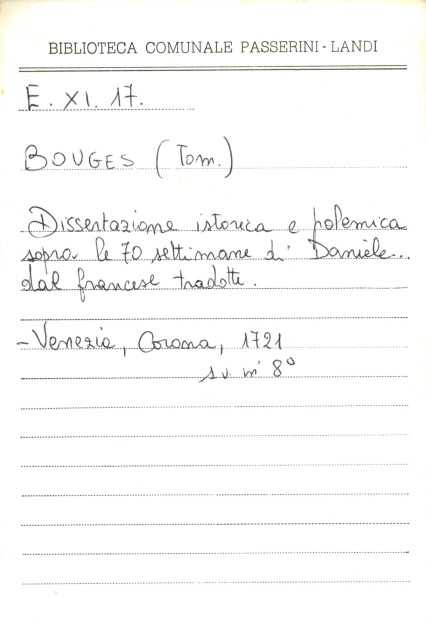 BIBLIOTECA COMUNALE PASSERINI - LANDI
E. XI. 17.
BOUGES (Tom.)
Dissertazione istorica e polemica
sopra le 70 settimane di Daniele...
dal francese tradotte.
- Venezia, Corona, 1721
1 v. in 8°